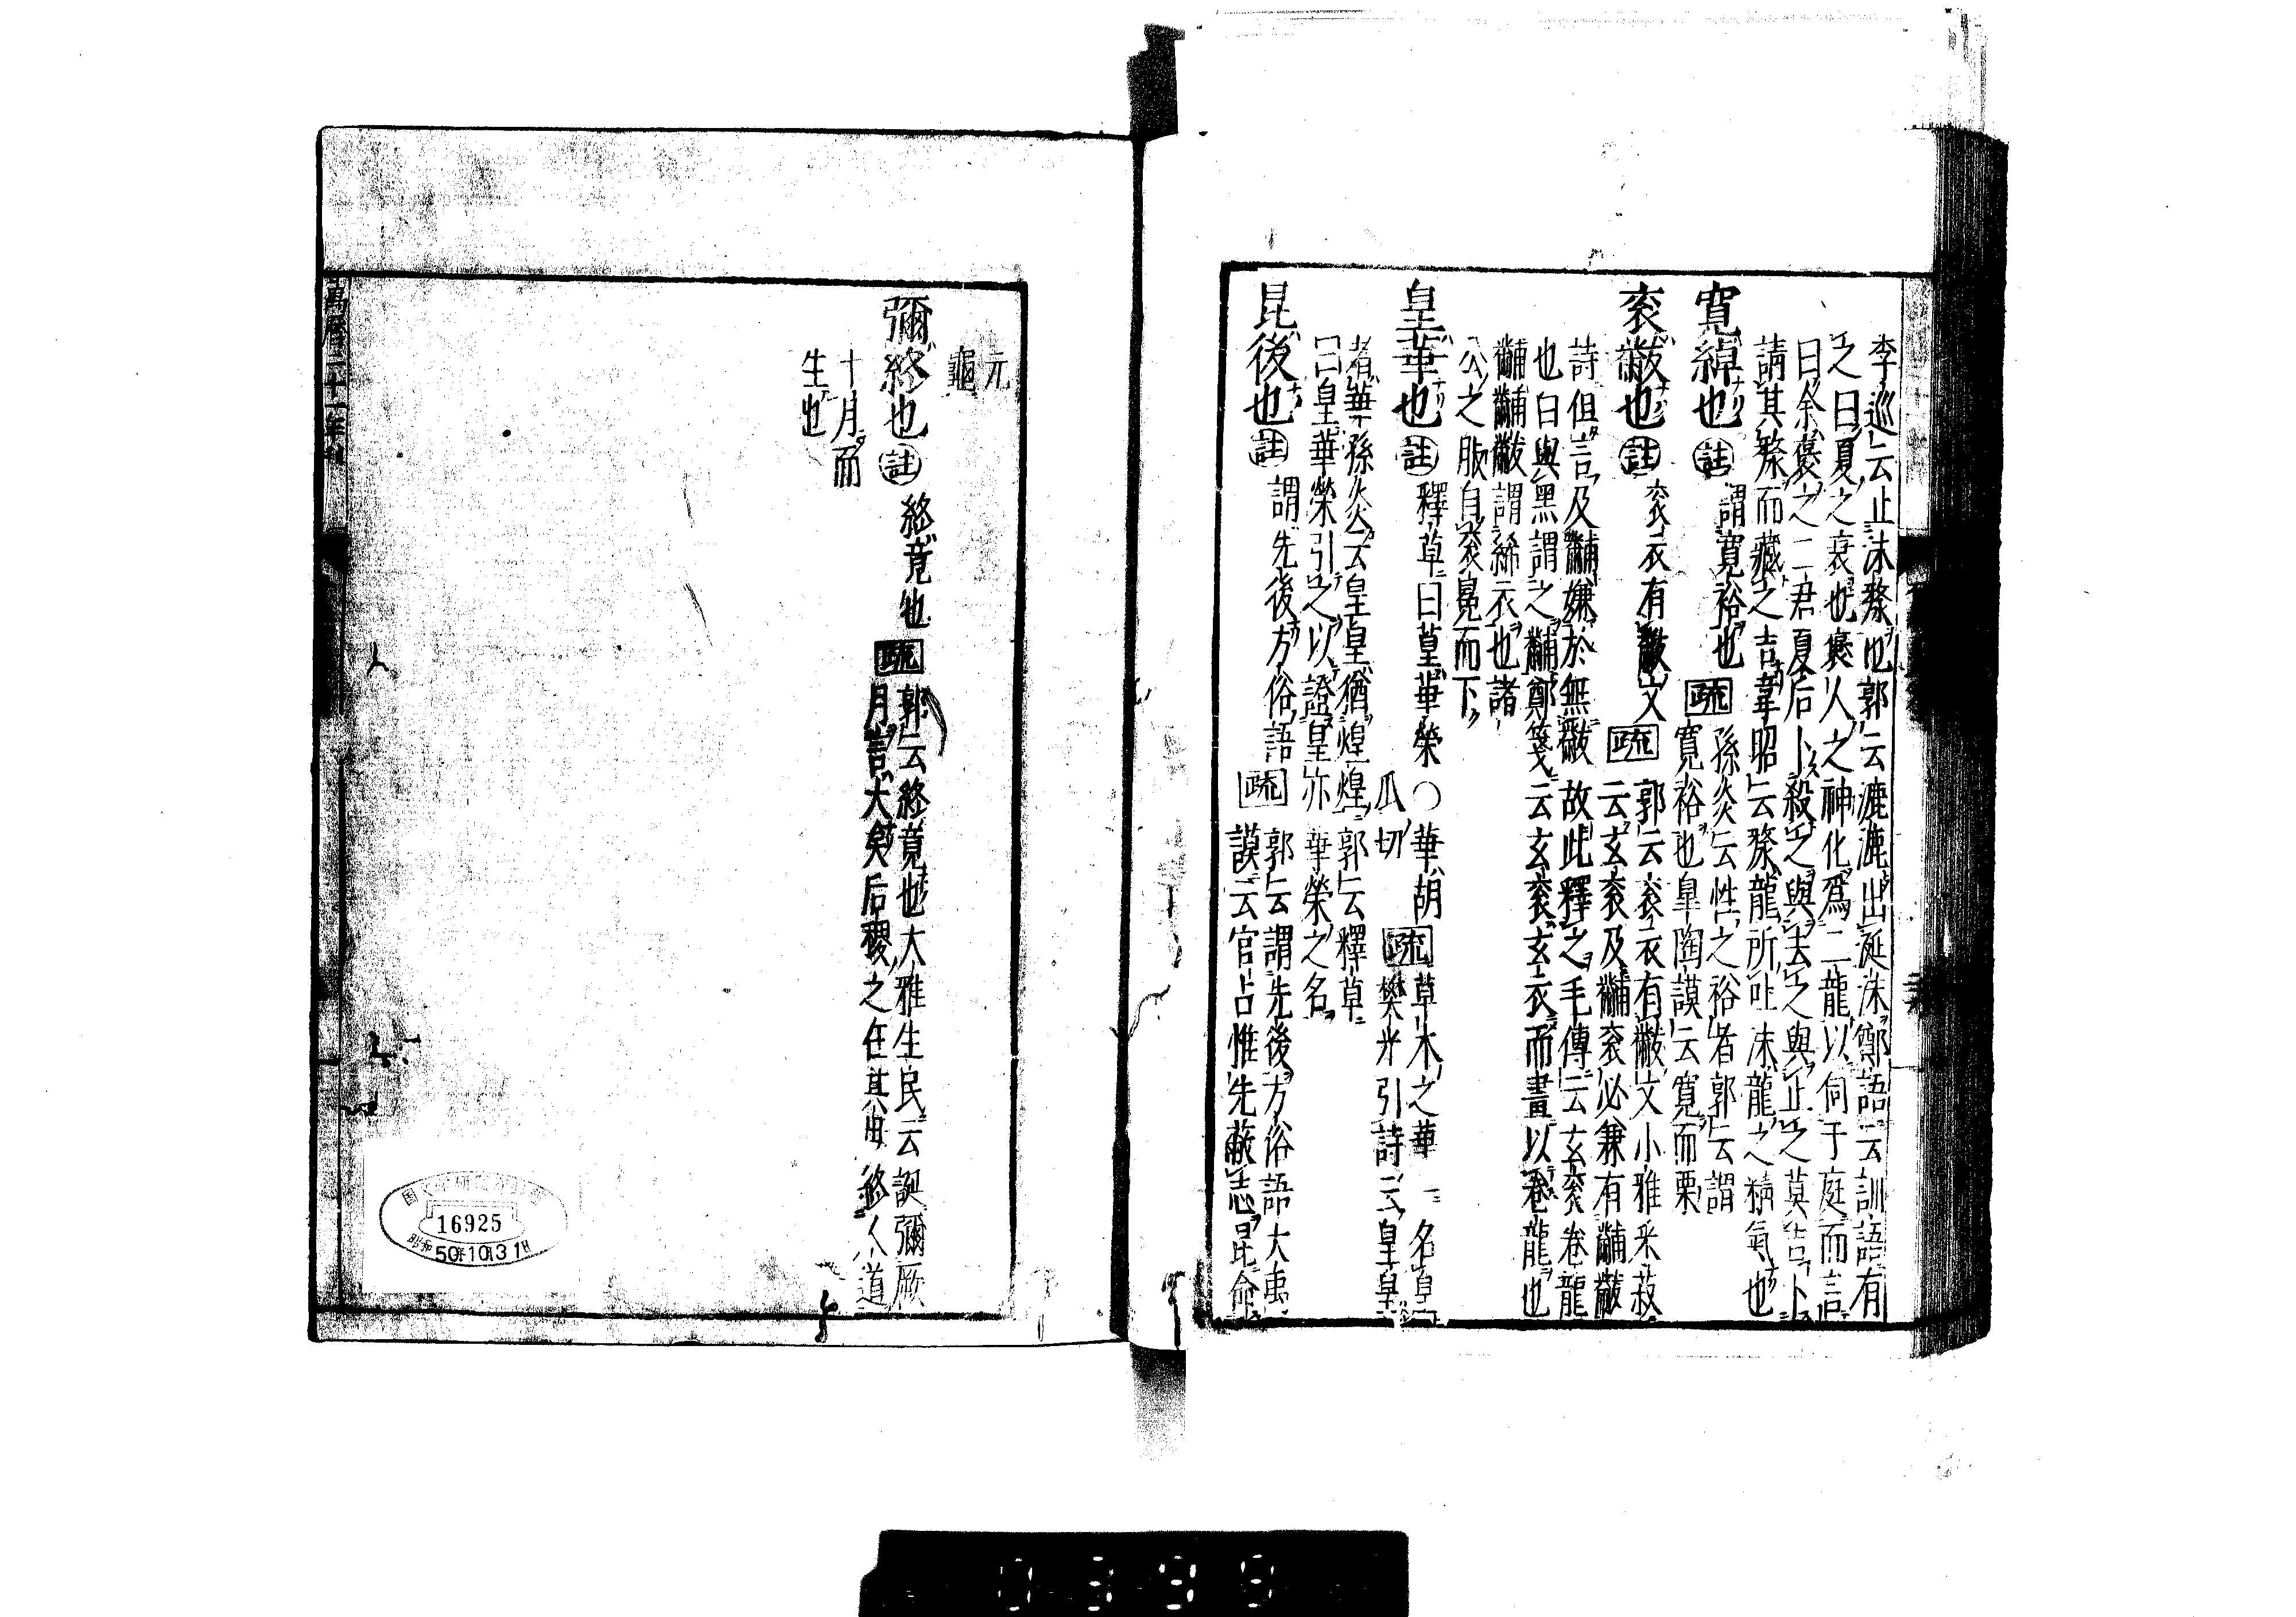 李巡云止沫漦也郭云漉漉出涎沫鄭語云訓語有
之曰夏之衰也襃人之神化爲二龍以伺于庭而言
曰余襃之二君夏后卜殺之與去之與止之莫吉卜
請其漦而藏之吉韋昭云漦龍所吐沫龍之精氣也
寬綽也註謂寬裕也疏孫炎云性之裕者郭云謂
寬裕也皐陶謨云寬而栗
衮黻也註衮衣有黻文疏郭云衮衣有黻文小雅采菽
云玄衮及黼衮必兼有黼黻
詩但言及黼嫌於無黻故此釋之毛傳云玄衮卷龍
也白與黑謂之黼鄭箋云玄衮玄衣而畫以卷龍也
黼黼黻謂絺衣也諸
公之服自衮冕而下
皇華也註釋草曰葟華榮○華胡
瓜切疏草木之華一名皇
樊光引詩云皇皇
者華孫炎云皇皇猶煌煌郭云釋草
曰皇華榮引之以證皇亦華榮之名
昆後也註謂先後方俗語疏郭云謂先後方俗語大禹
謨云官占惟先蔽志昆命
元
龜
彌終也註終竟也疏郭云終竟也大雅生民云誕彌厥
月言大矣后稷之在其母終人道
十月而
生也
萬曆二十一年刊
16925
昭和50年10月31日
0399